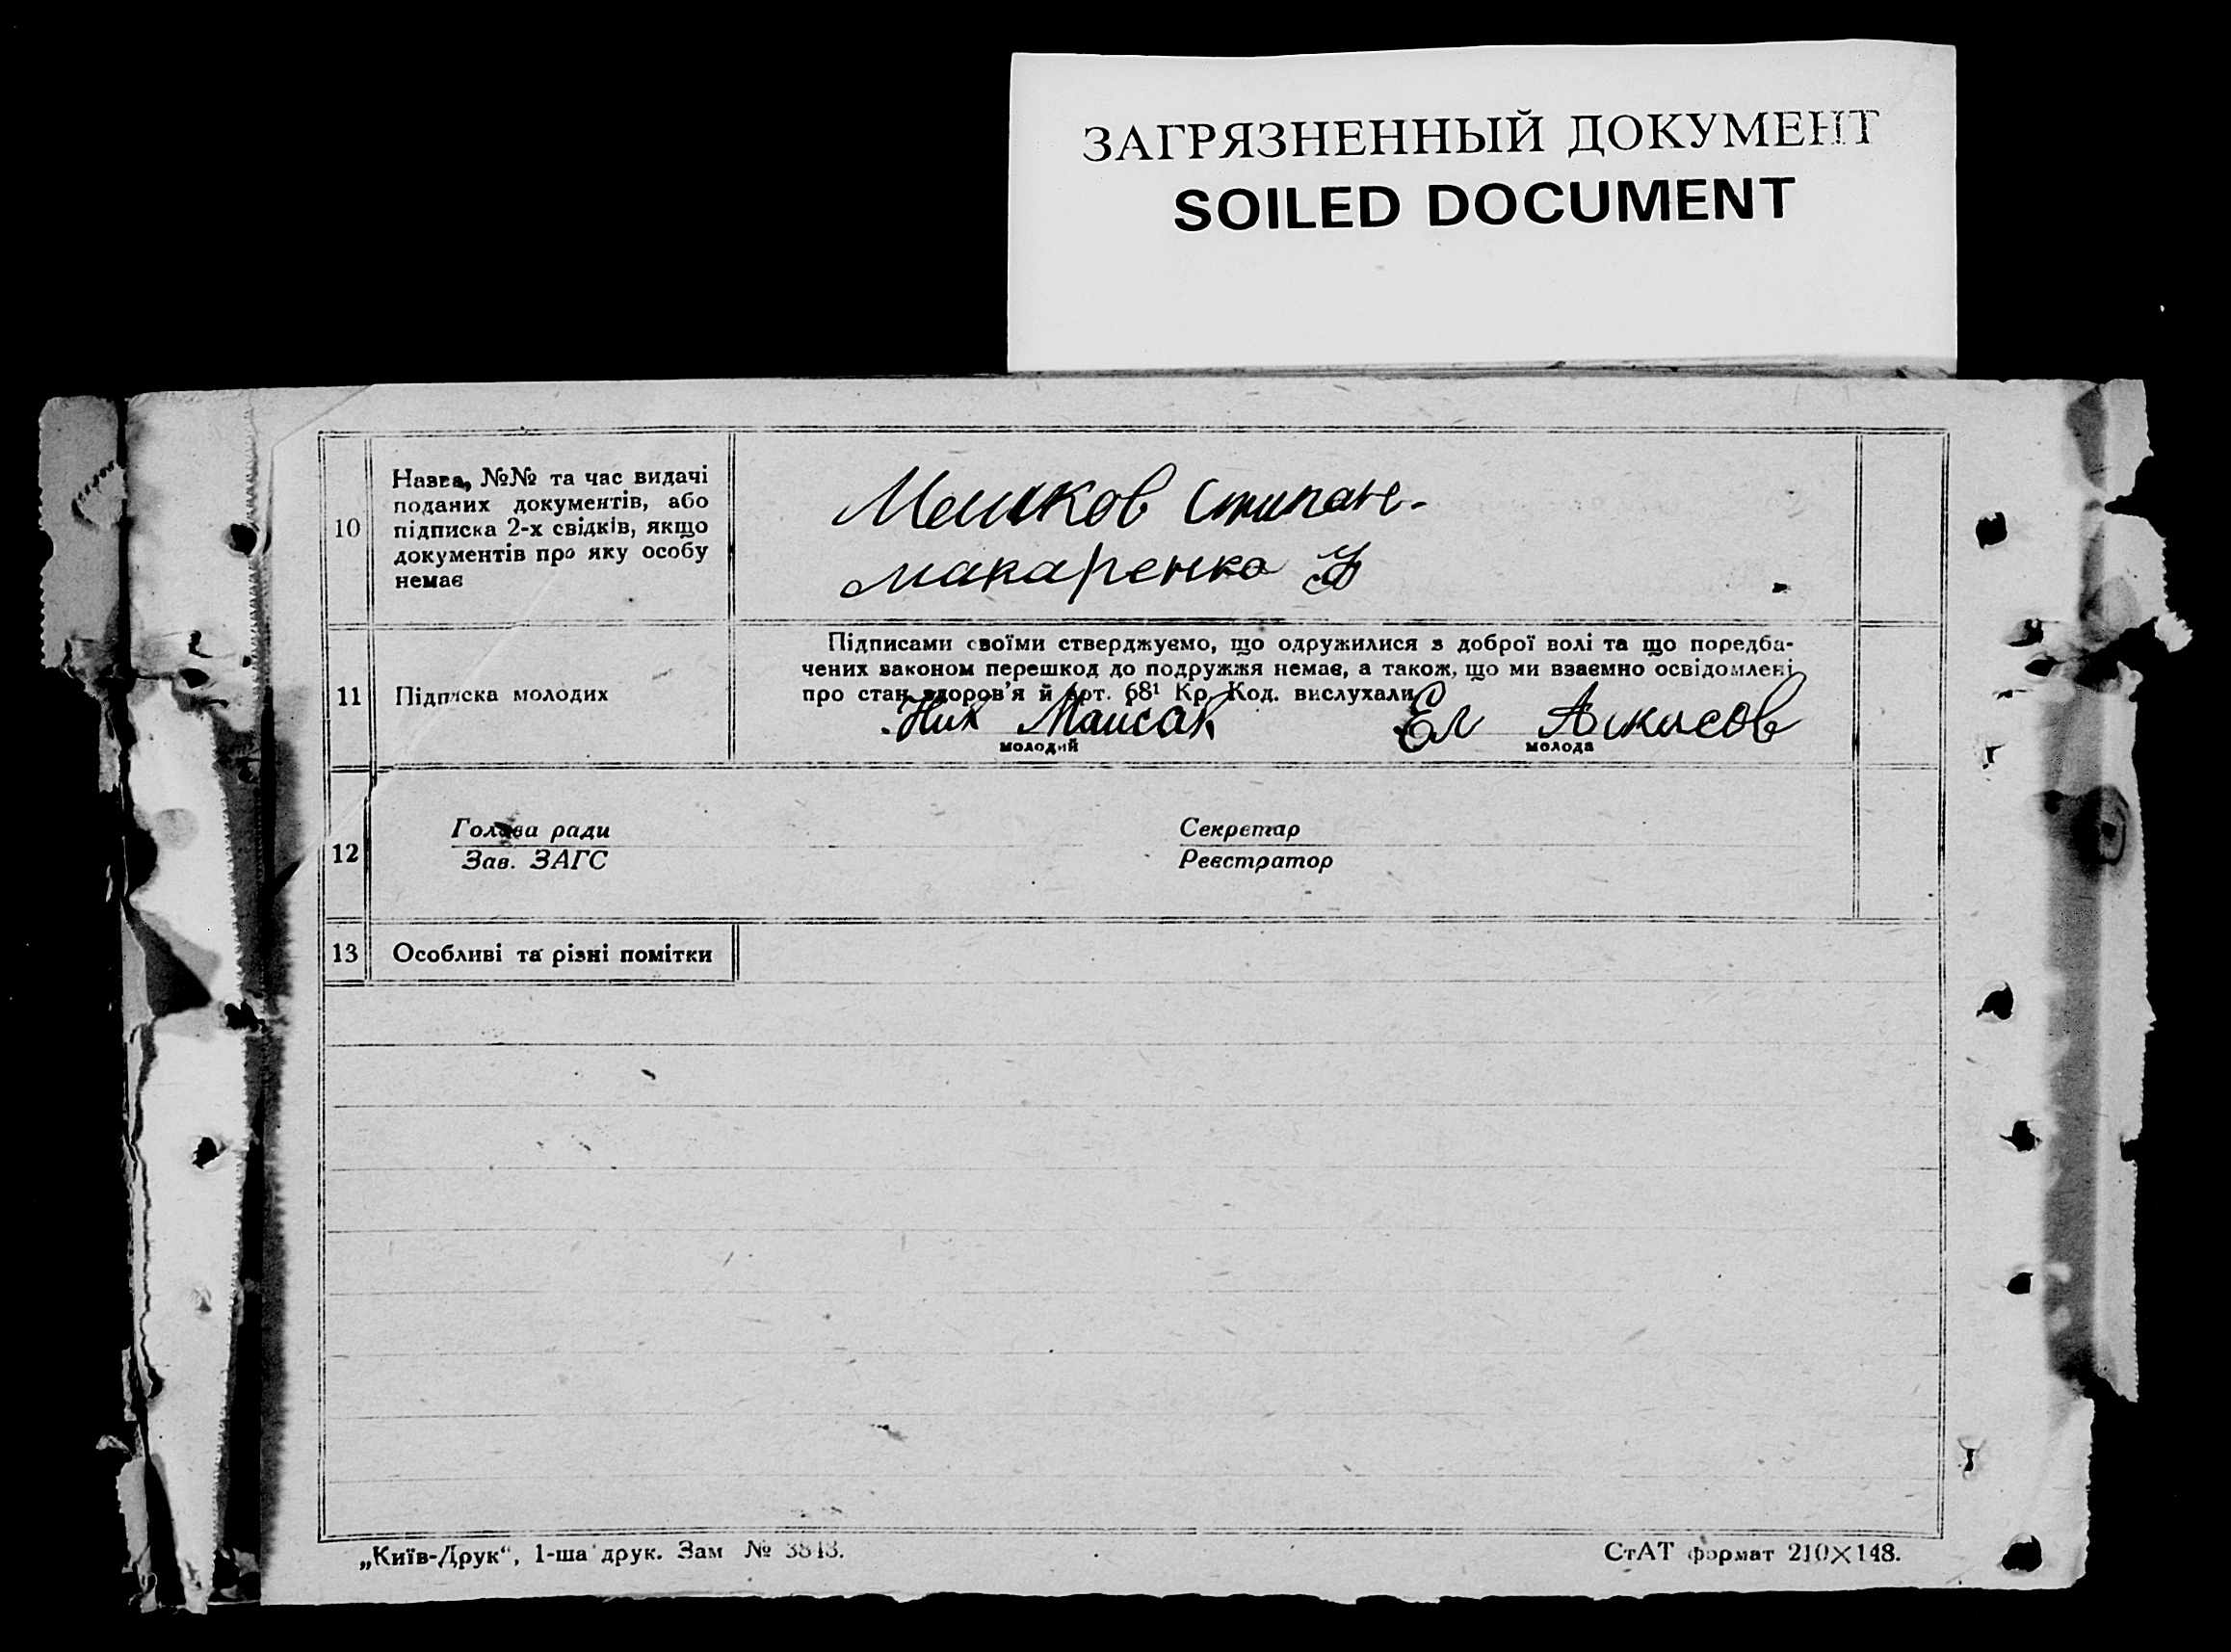 ЗАГРЯЗНЕННЫЙ ДОКУМЕНТ
SOILED DOCUMENT
10
Назва, №№ та час видачі
поданих документів, або
підписка 2-х свідків, якщо
документів про яку особу
немає
Мешков Стипане.
Макаренко
11
Підписка молодих
Підписами своїми стверджуємо, що одружилися з доброї волі та що поредба-
чених законом перешкод до подружжя немає, а також, що ми взаємно освідомлені
про стан здоров'я й Арт. 68¹ Кр. Код. вислухали
Ник Маисак Ел
молодий молода
12
Голова ради Секретар
Зав. ЗАГС Реєстратор
13 Особливі та різні помітки
„Київ-Друк“, 1-ша друк. Зам № 3843. СтАТ формат 210×148.